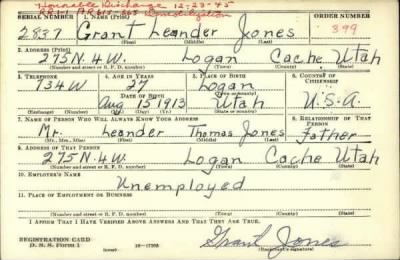 Honorable Discharge 12-23-45
SERIAL NUMBER 1. NAME (Print) ORDER NUMBER
2837 Grant Leander Jones 399
(First) (Middle) (Last)
2. ADDRESS (Print)
275 N. 4 W. Logan Cache Utah
(Number and street or R. F. D. number) (Town) (County) (State)
3. TELEPHONE 4. AGE IN YEARS 5. PLACE OF BIRTH 6. COUNTRY OF CITIZENSHIP
734 W Logan
DATE OF BIRTH (Town or county)
Aug 15 1913 Utah U.S.A.
(Exchange) (Number) (Mo.) (Day) (Yr.) (State or country)
7. NAME OF PERSON WHO WILL ALWAYS KNOW YOUR ADDRESS 8. RELATIONSHIP OF THAT PERSON
Mr. Leander Thomas Jones Father
(Mr., Mrs., Miss) (First) (Middle) (Last)
9. ADDRESS OF THAT PERSON
275 N. 4 W. Logan Cache Utah
(Number and street or R. F. D. number) (Town) (County) (State)
10. EMPLOYER'S NAME
Unemployed
11. PLACE OF EMPLOYMENT OR BUSINESS
(Number and street or R. F. D. number) (Town) (County) (State)
I AFFIRM THAT I HAVE VERIFIED ABOVE ANSWERS AND THAT THEY ARE TRUE.
REGISTRATION CARD
D. S. S. Form 1 16-17105 Grant Jones
(Registrant's signature)